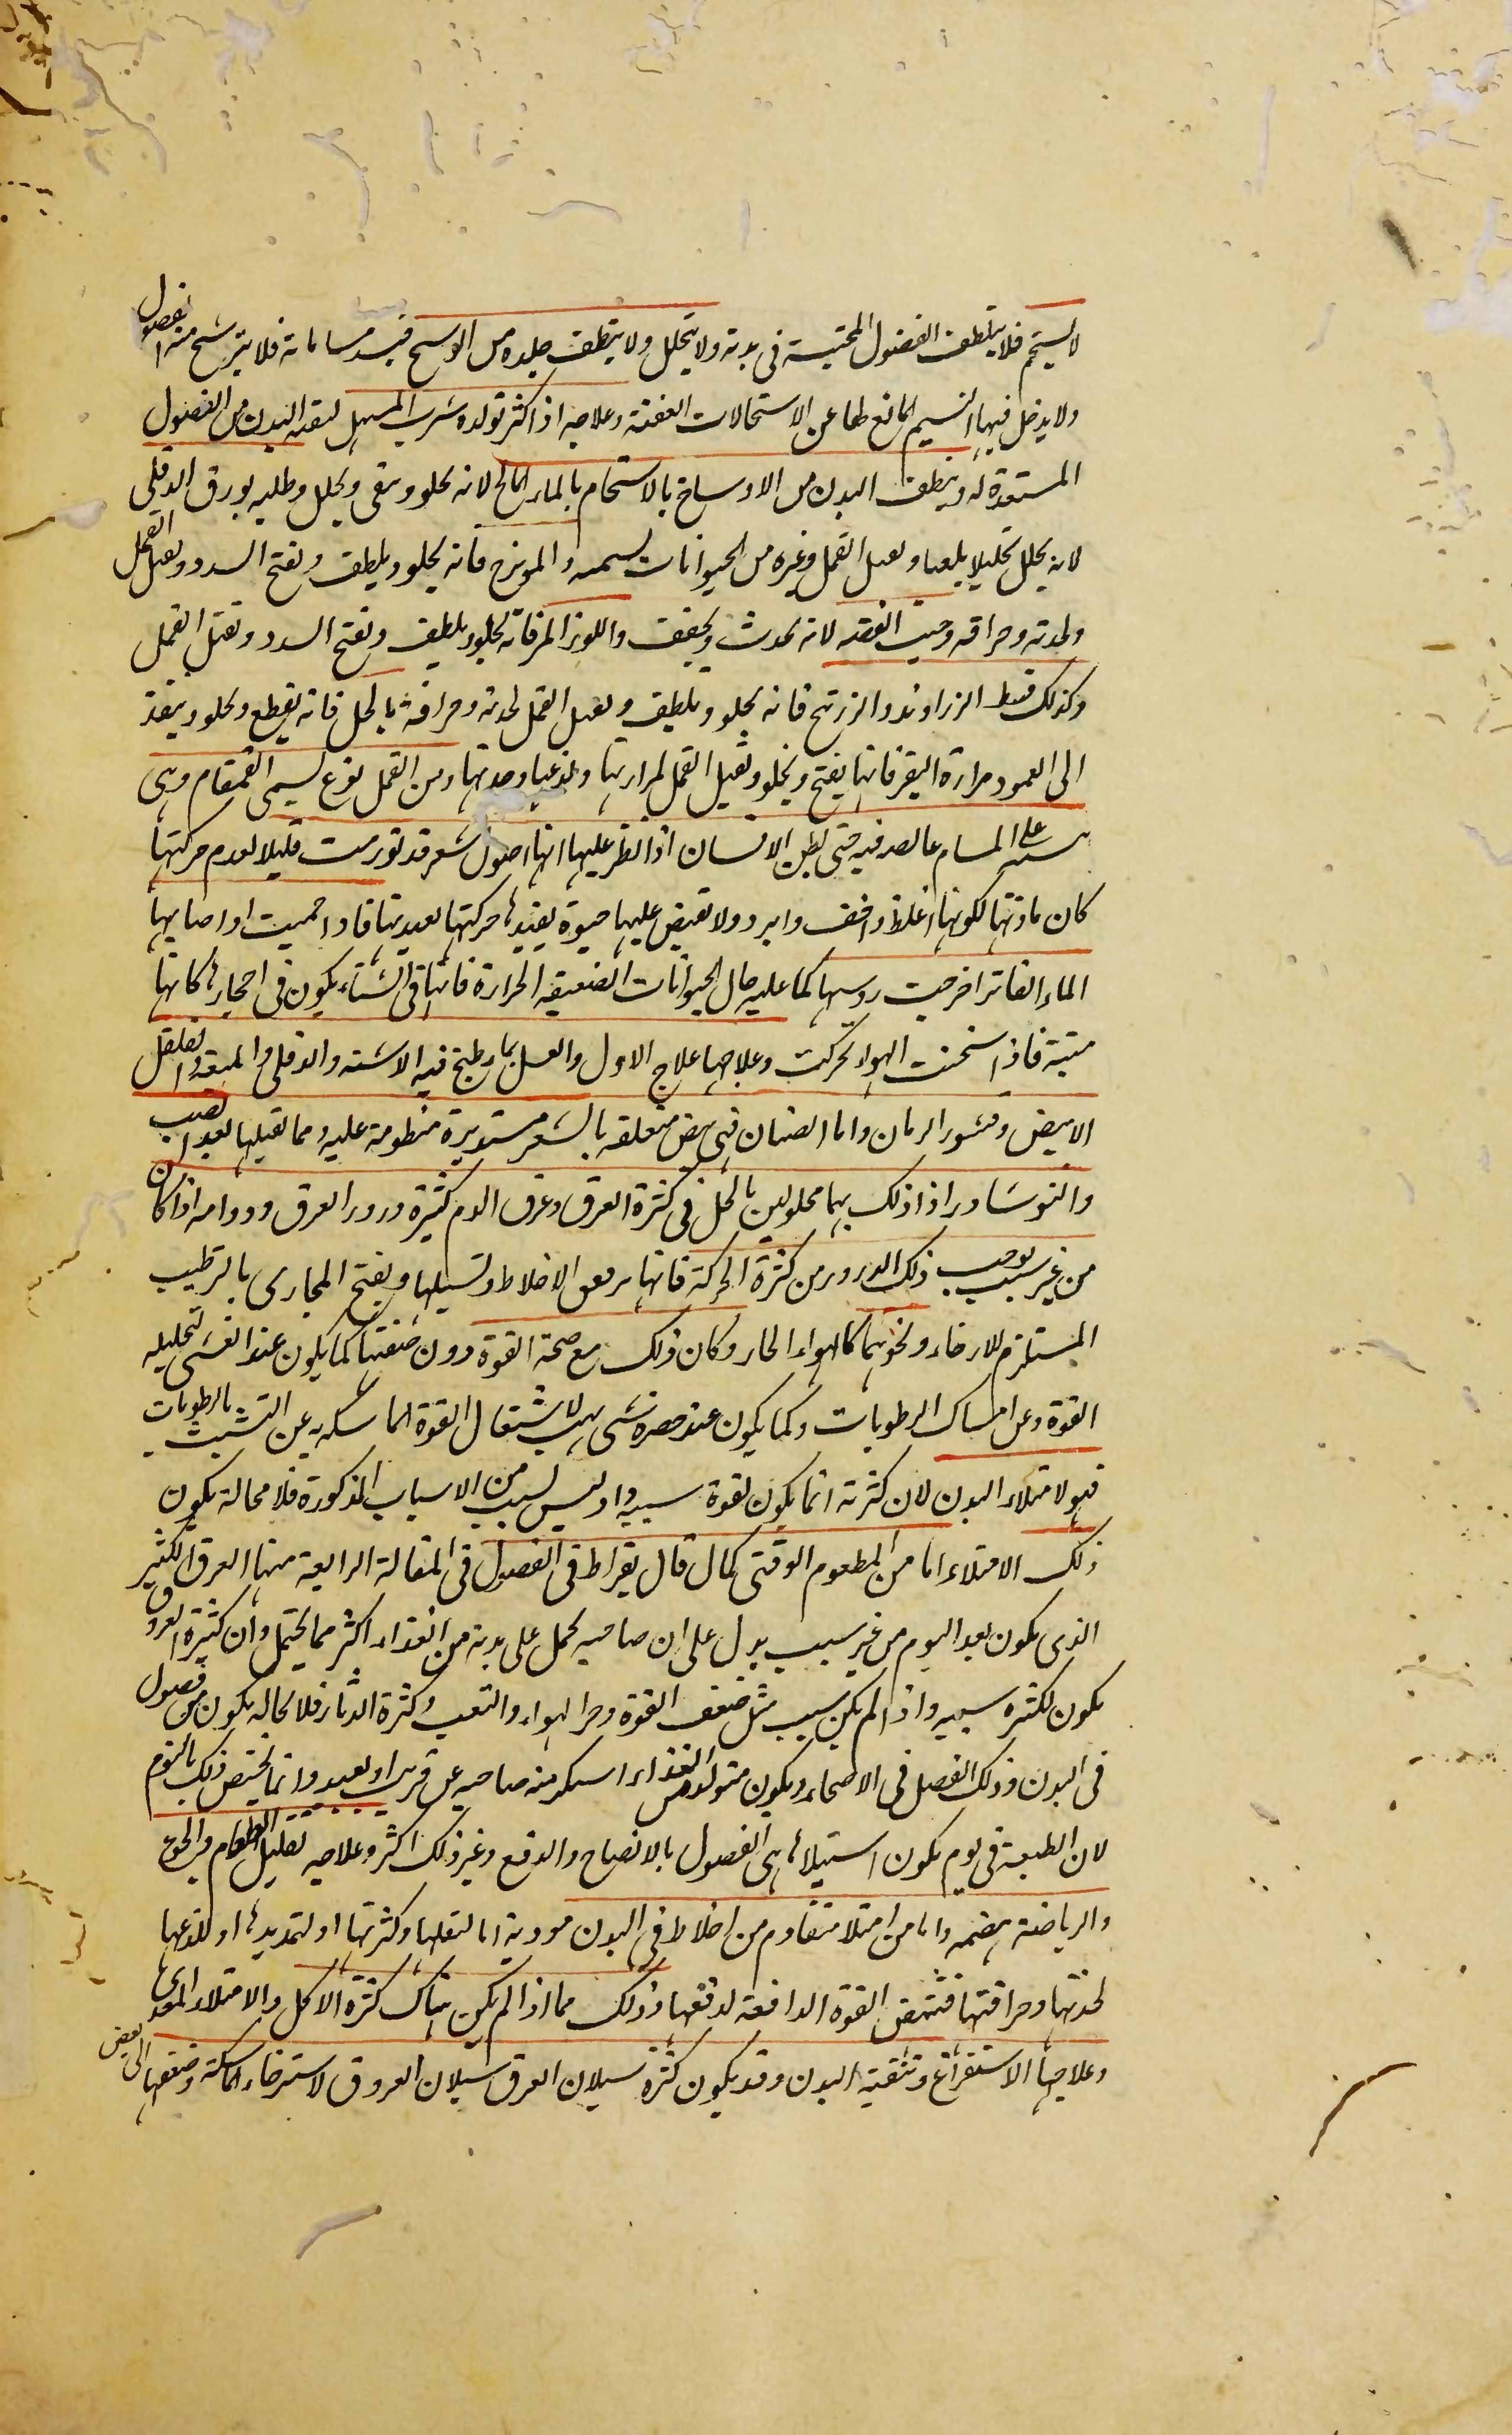 لا يستحم فلا يتلطف الفضول المحتبسة فى بدنه ولا يتحلل ولا ينظف جلده من الوسخ فيسد مساماته فلا يترشح منه الفضول
ولا يدخل فيها النسيم المانع لها عن الاستحالات العفنة وعلاجه اذا كثر تولده شرب المسهل لتنقية البدن من الفضول
المستعدة له وتنظف البدن من الاوساخ بالاستحمام بالماء المالح لانه يجلو وينقى ويحلل وطليه بورق الدفلى
لانه يحلل تحليلا بليغا ويقتل القمل وغيره من الحيوانات لسميته والميويزج فانه يجلو ويلطف ويفتح السدد ويقتل القمل
ولحدته وحرافته وخبث الفضة لانه يحدث ويجفف واللوز المر فانه يجلو ويلطف ويفتح السدد ويقتل القمل
وكذلك قسط الزراوند والزرنيخ فانه يجلو ويلطف ويقتل القمل لحدته وحرافته بالخل فانه يقطع ويجلو وينفذ
الى العمود مرارة البقر فانها يفتح ويجلو ويقتل القمل لمرارتها ولذعها وحدتها ومن القمل نوع يسمى القمقام وهى
على المسام غائصه فيه حتى يظن الانسان اذا نظر عليها انها اصول شعر قد تورمت قليلا لعدم حركتها
كان مادتها لكونها اغلظ واخف وابرد ولا تفيض عليها حيوة يفيدها حركتها لعديتها فاذا حميت او اصابها
الماء الفاتر اخرجت روسها كما عليه حال الحيوانات الضعيفة الحرارة فانها فى الشتاء يكون فى احجارها كانها
ميتة فاذا سخنت الهواء تحركت وعلاجها علاج الاول والغسل بماء طبخ فيه الاشنه والدفلى والفلفل
الابيض وقشور الرمان واما الصئبان فهى بيض متعلقه بالشعر مستديرة منظومة عليه ومما تقتيلها لعد الصب
والنوشادر اذا دلك بهما محلولين بالخل فى كثرة العرق وعرق الدم كثيرة ودرور العرق ودوامه اذا كان
من غير سبب يوجب ذلك الدرور من كثرة الحركة فانها يرقق الاخلاط وتسيلها ويفتح المجارى بالترطيب
المستلزم للارخاء ونحوهما كالهواء الحار وكان ذلك مع صحة القوة دون ضعفها كما يكون عند الغشى لتحليله
القوة وعن امساك الرطوبات وكما يكون عند حضرة شى يهيب لاشتغال القوة الماسكة به عن التشبث بالرطوبات
فهو لامتلاء البدن لان كثرته انما يكون لقوة سببه واذ ليس لسبب من الاسباب المذكورة فلا محالة يكون
ذلك الامتلاء اما من المطعوم الوقتى كما قال بقراط فى الفصول فى المقالة الرابعة منها العرق الكثير
الذى يكون بعد النوم من غير سبب يدل على ان صاحبه يحمل على بدنه من الغذاء اكثر مما يحتمل وان كثرة العرق
يكون لكثره سببه واذا لم يكن سبب مثل ضعف القوة وحر الهواء والتعب وكثرة الدثار فلا محالة يكون من فضول
فى البدن وذلك الفصل فى الاصحاء ويكون متولدا من الغذاء استكثر منه صاحبه عن قريب او بعيد وانما يختص ذلك بالنوم
لان الطبيعة فى نوم يكون استيلائها على الفصول بالانضاج والدفع وغير ذلك اكثر وعلاجه تقليل الطعام والجوع
والرياضة بهضمه واما من امتلاء متقادم من اخلاط فى البدن موذية اما لثقلها وكثرتها او لتمديدها او للذعها
لحدتها وحرافتها فتنهض القوة الدافعة لدفعها وذلك مما اذا لم يكن هناك كثرة الاكل والامتلاء المعدى
وعلاجها الاستفراغ وتنقية البدن وقد يكون كثرة سيلان العرق سيلان العروق لاسترخاء الماسكة وضعفها الى بعض